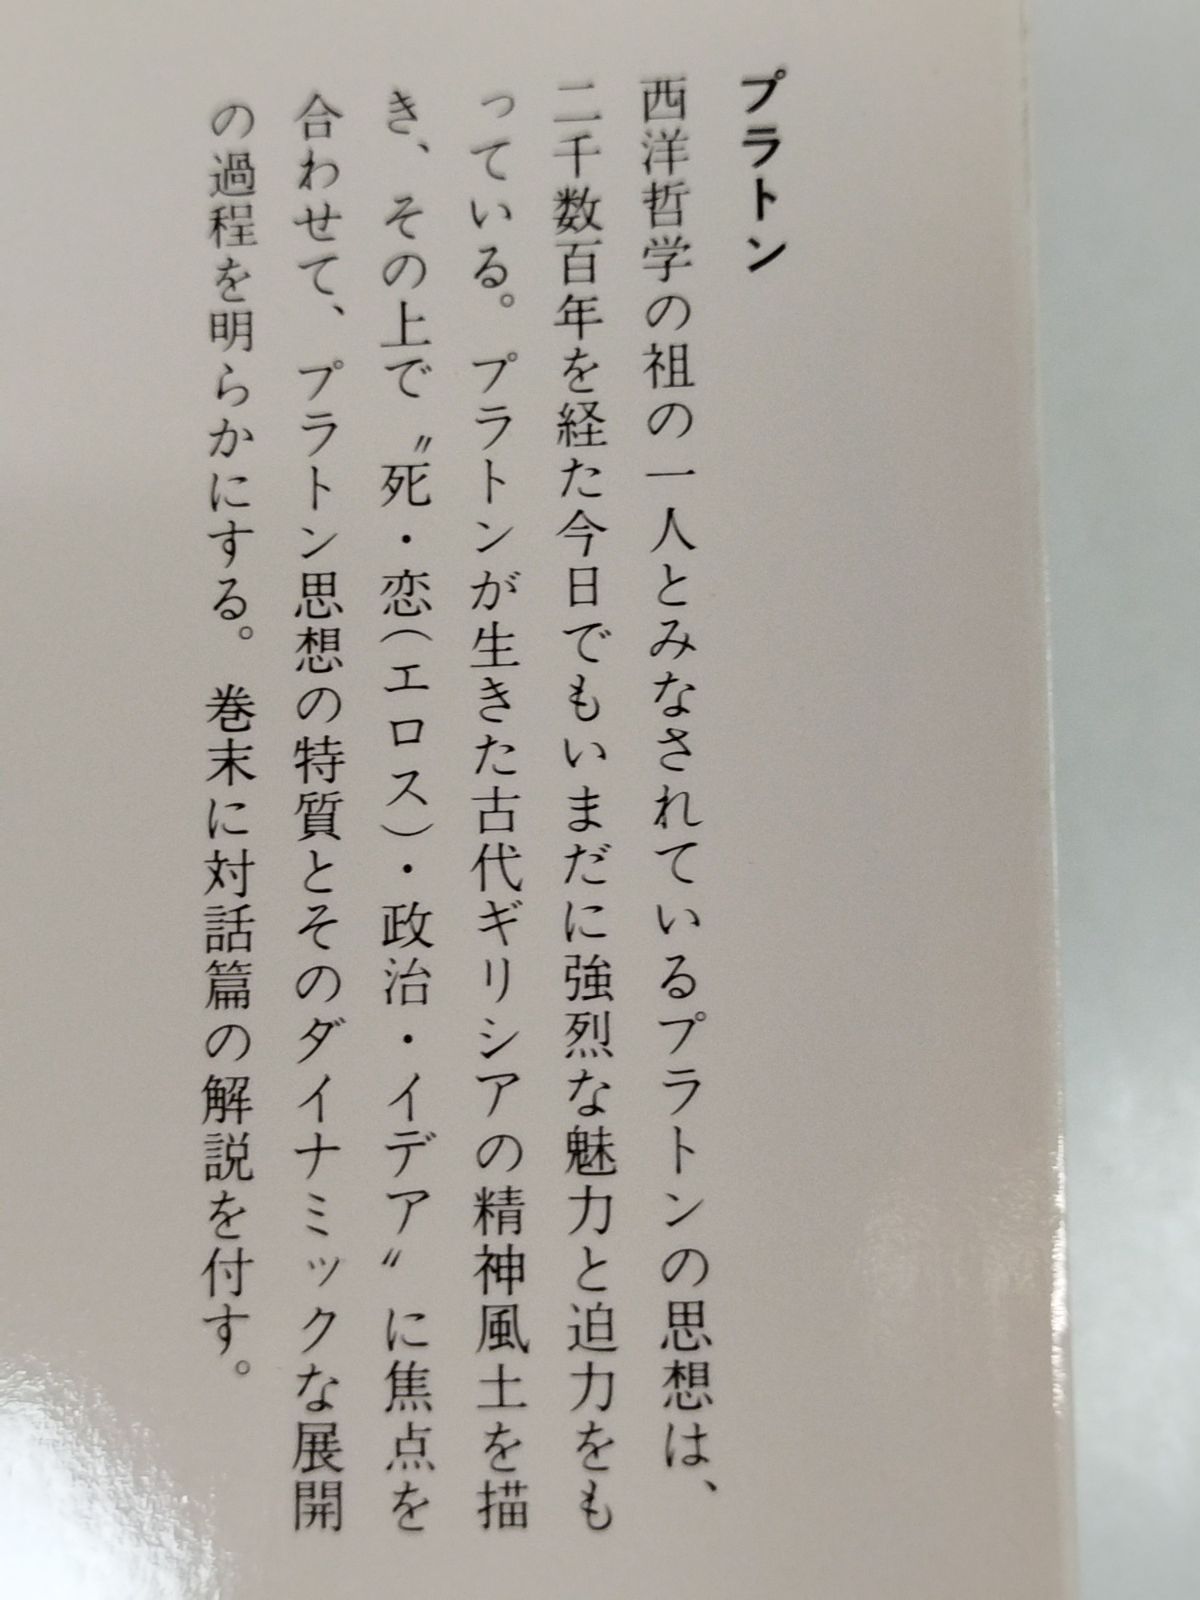 プラトン
西洋哲学の祖の一人とみなされているプラトンの思想は、
二千数百年を経た今日でもいまだに強烈な魅力と迫力をも
っている。プラトンが生きた古代ギリシアの精神風土を描
き、その上で〝死・恋(エロス)・政治・イデア〟に焦点を
合わせて、プラトン思想の特質とそのダイナミックな展開
の過程を明らかにする。巻末に対話篇の解説を付す。